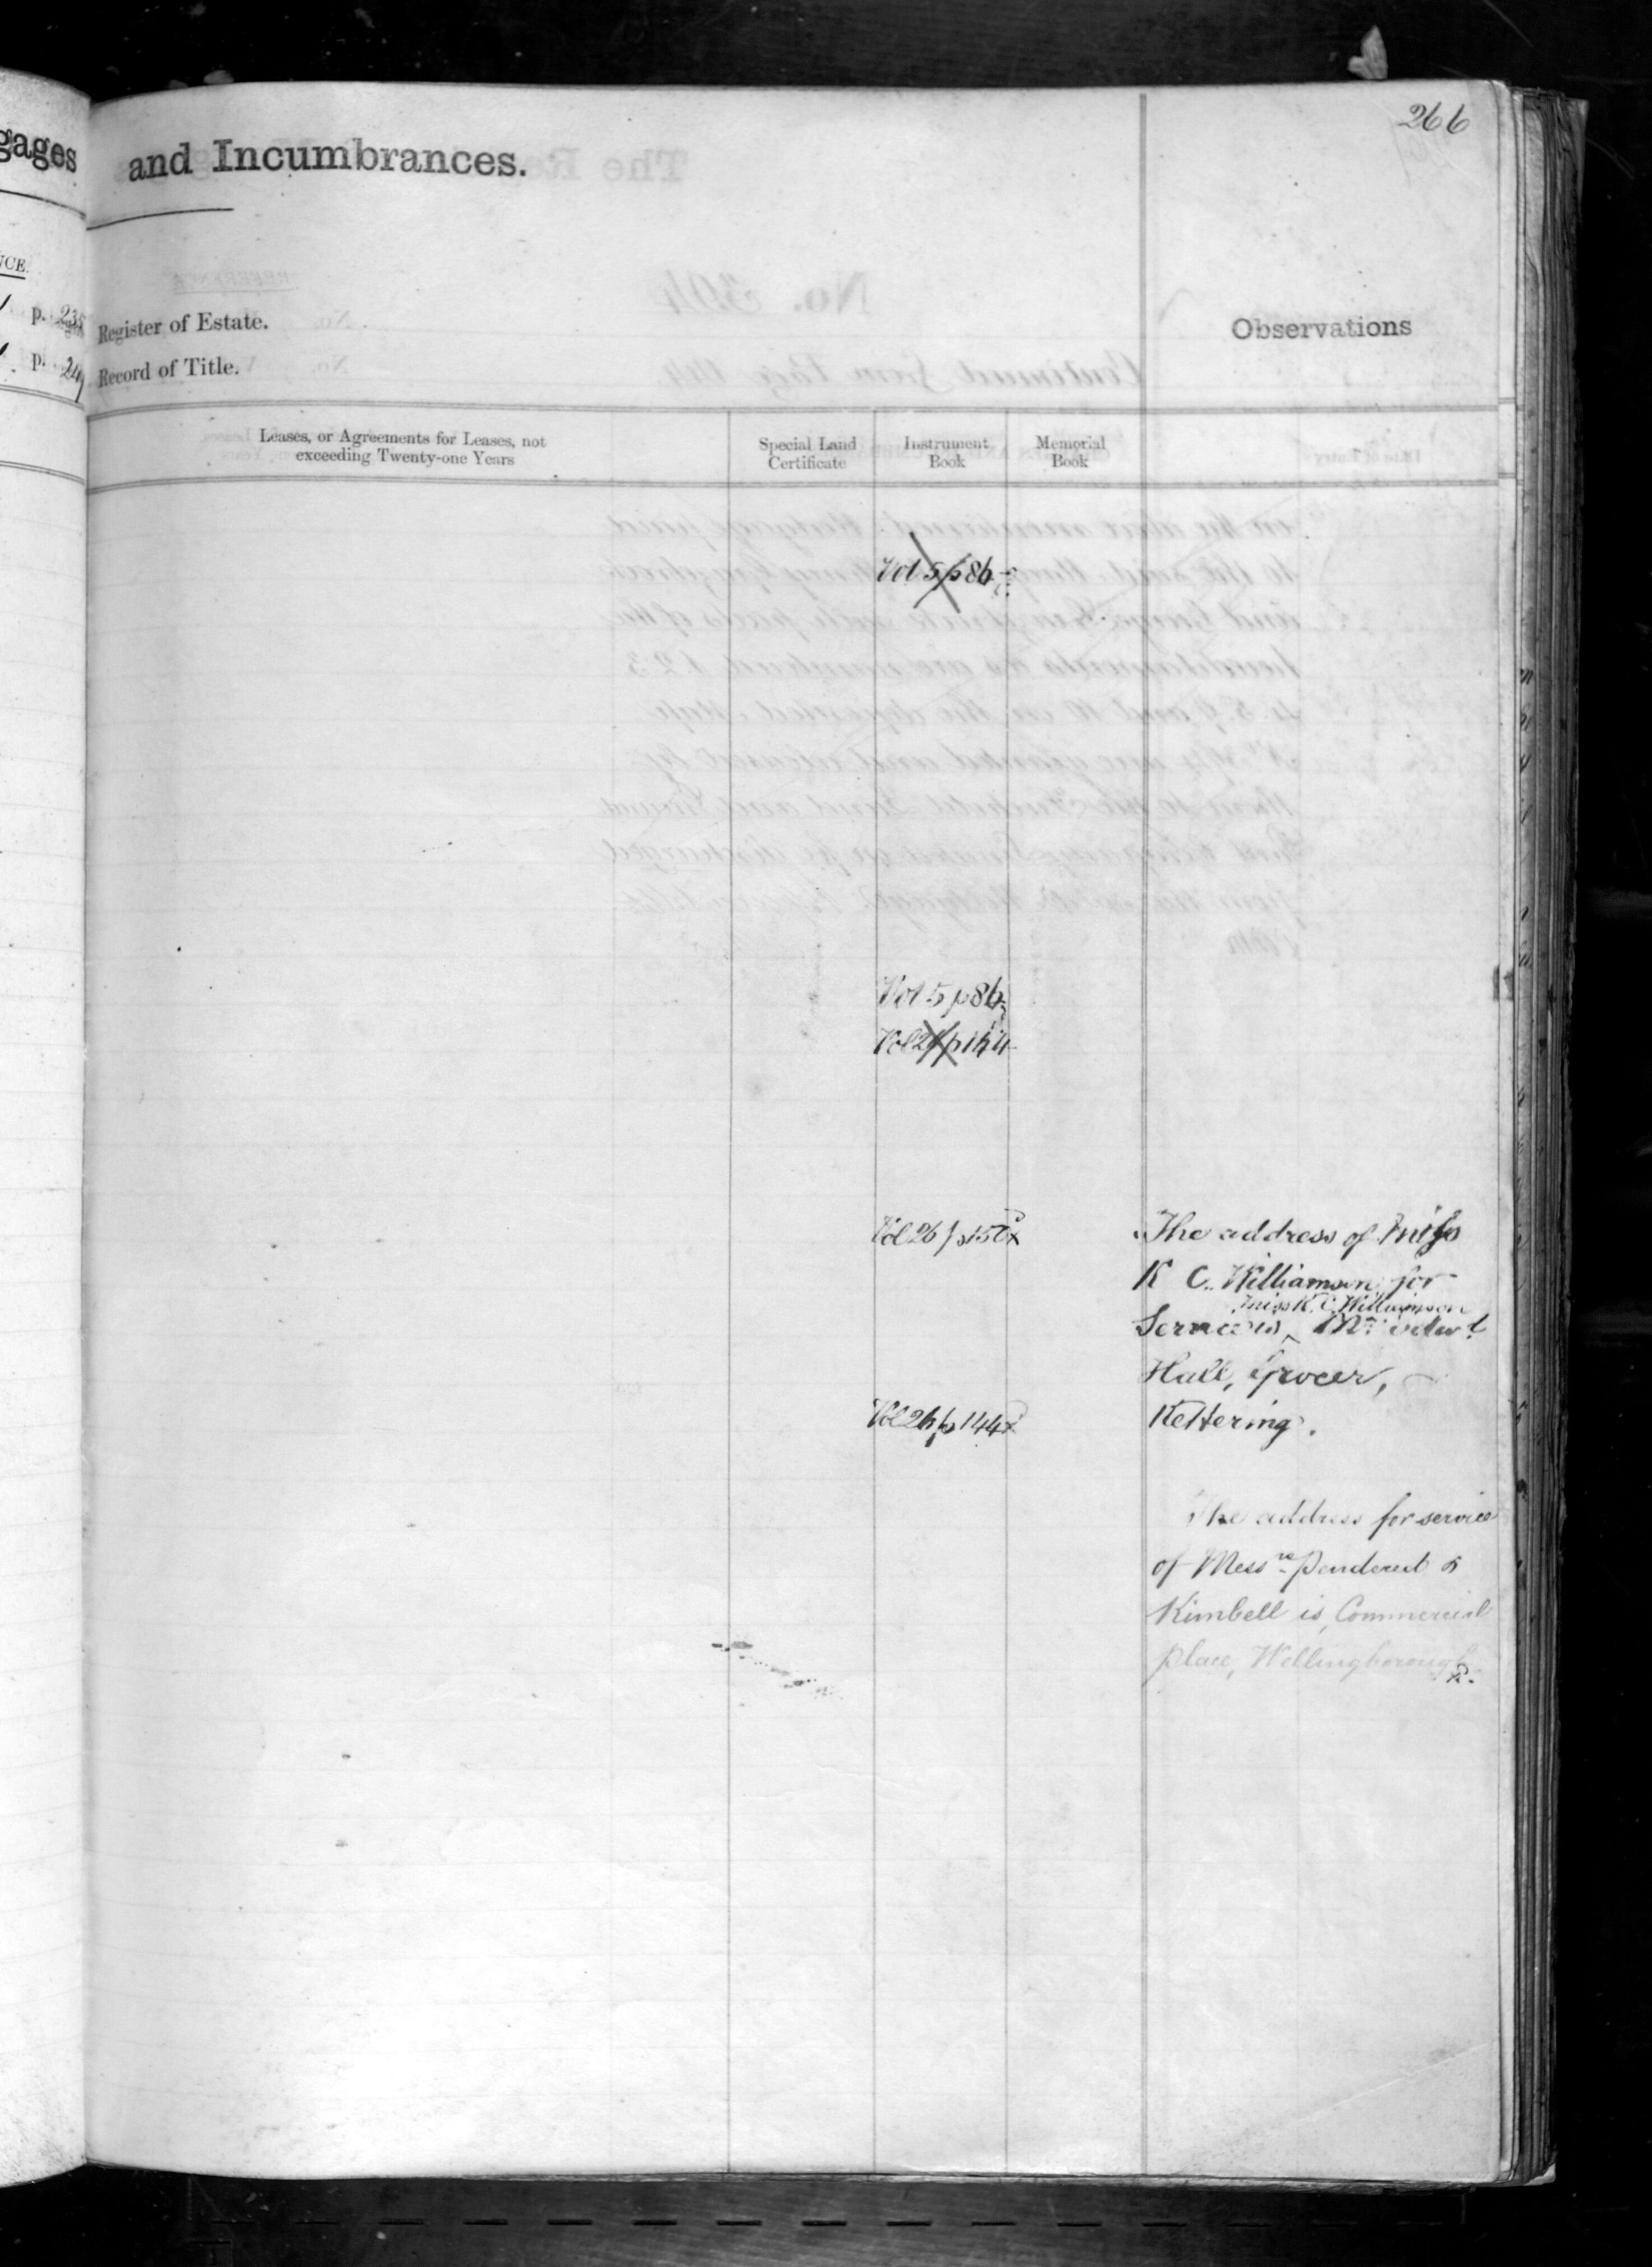 266
gages and Incumbrances.
p. 235 Register of Estate.
p. 249 Record of Title.
Observations
Leases, or Agreements for Leases, not
exceeding Twenty-one Years
Special Land
Certificate
Instrument
Book
Memorial
Book
Vol 5 p 86
Vol 5 p 86
Vol 26 p 144
Vol 26 p 150
Vol 26 p 144
The address of Miss
K C. Williamson for
Miss K. C. Williamson
Service is Mr.
Hall, Grocer,
Kettering.
The address for service
of Messrs Pendered &
Kimbell is, Commercial
place, Wellingborough